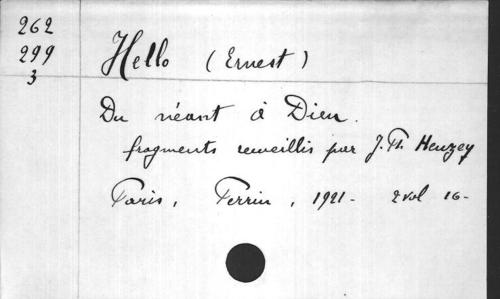 262
299
3
Hello (Ernest)
Du néant à Dieu.
fragments recueillis par J. Th. Heuzey
Paris, Perrin, 1921- 2 vol 16-